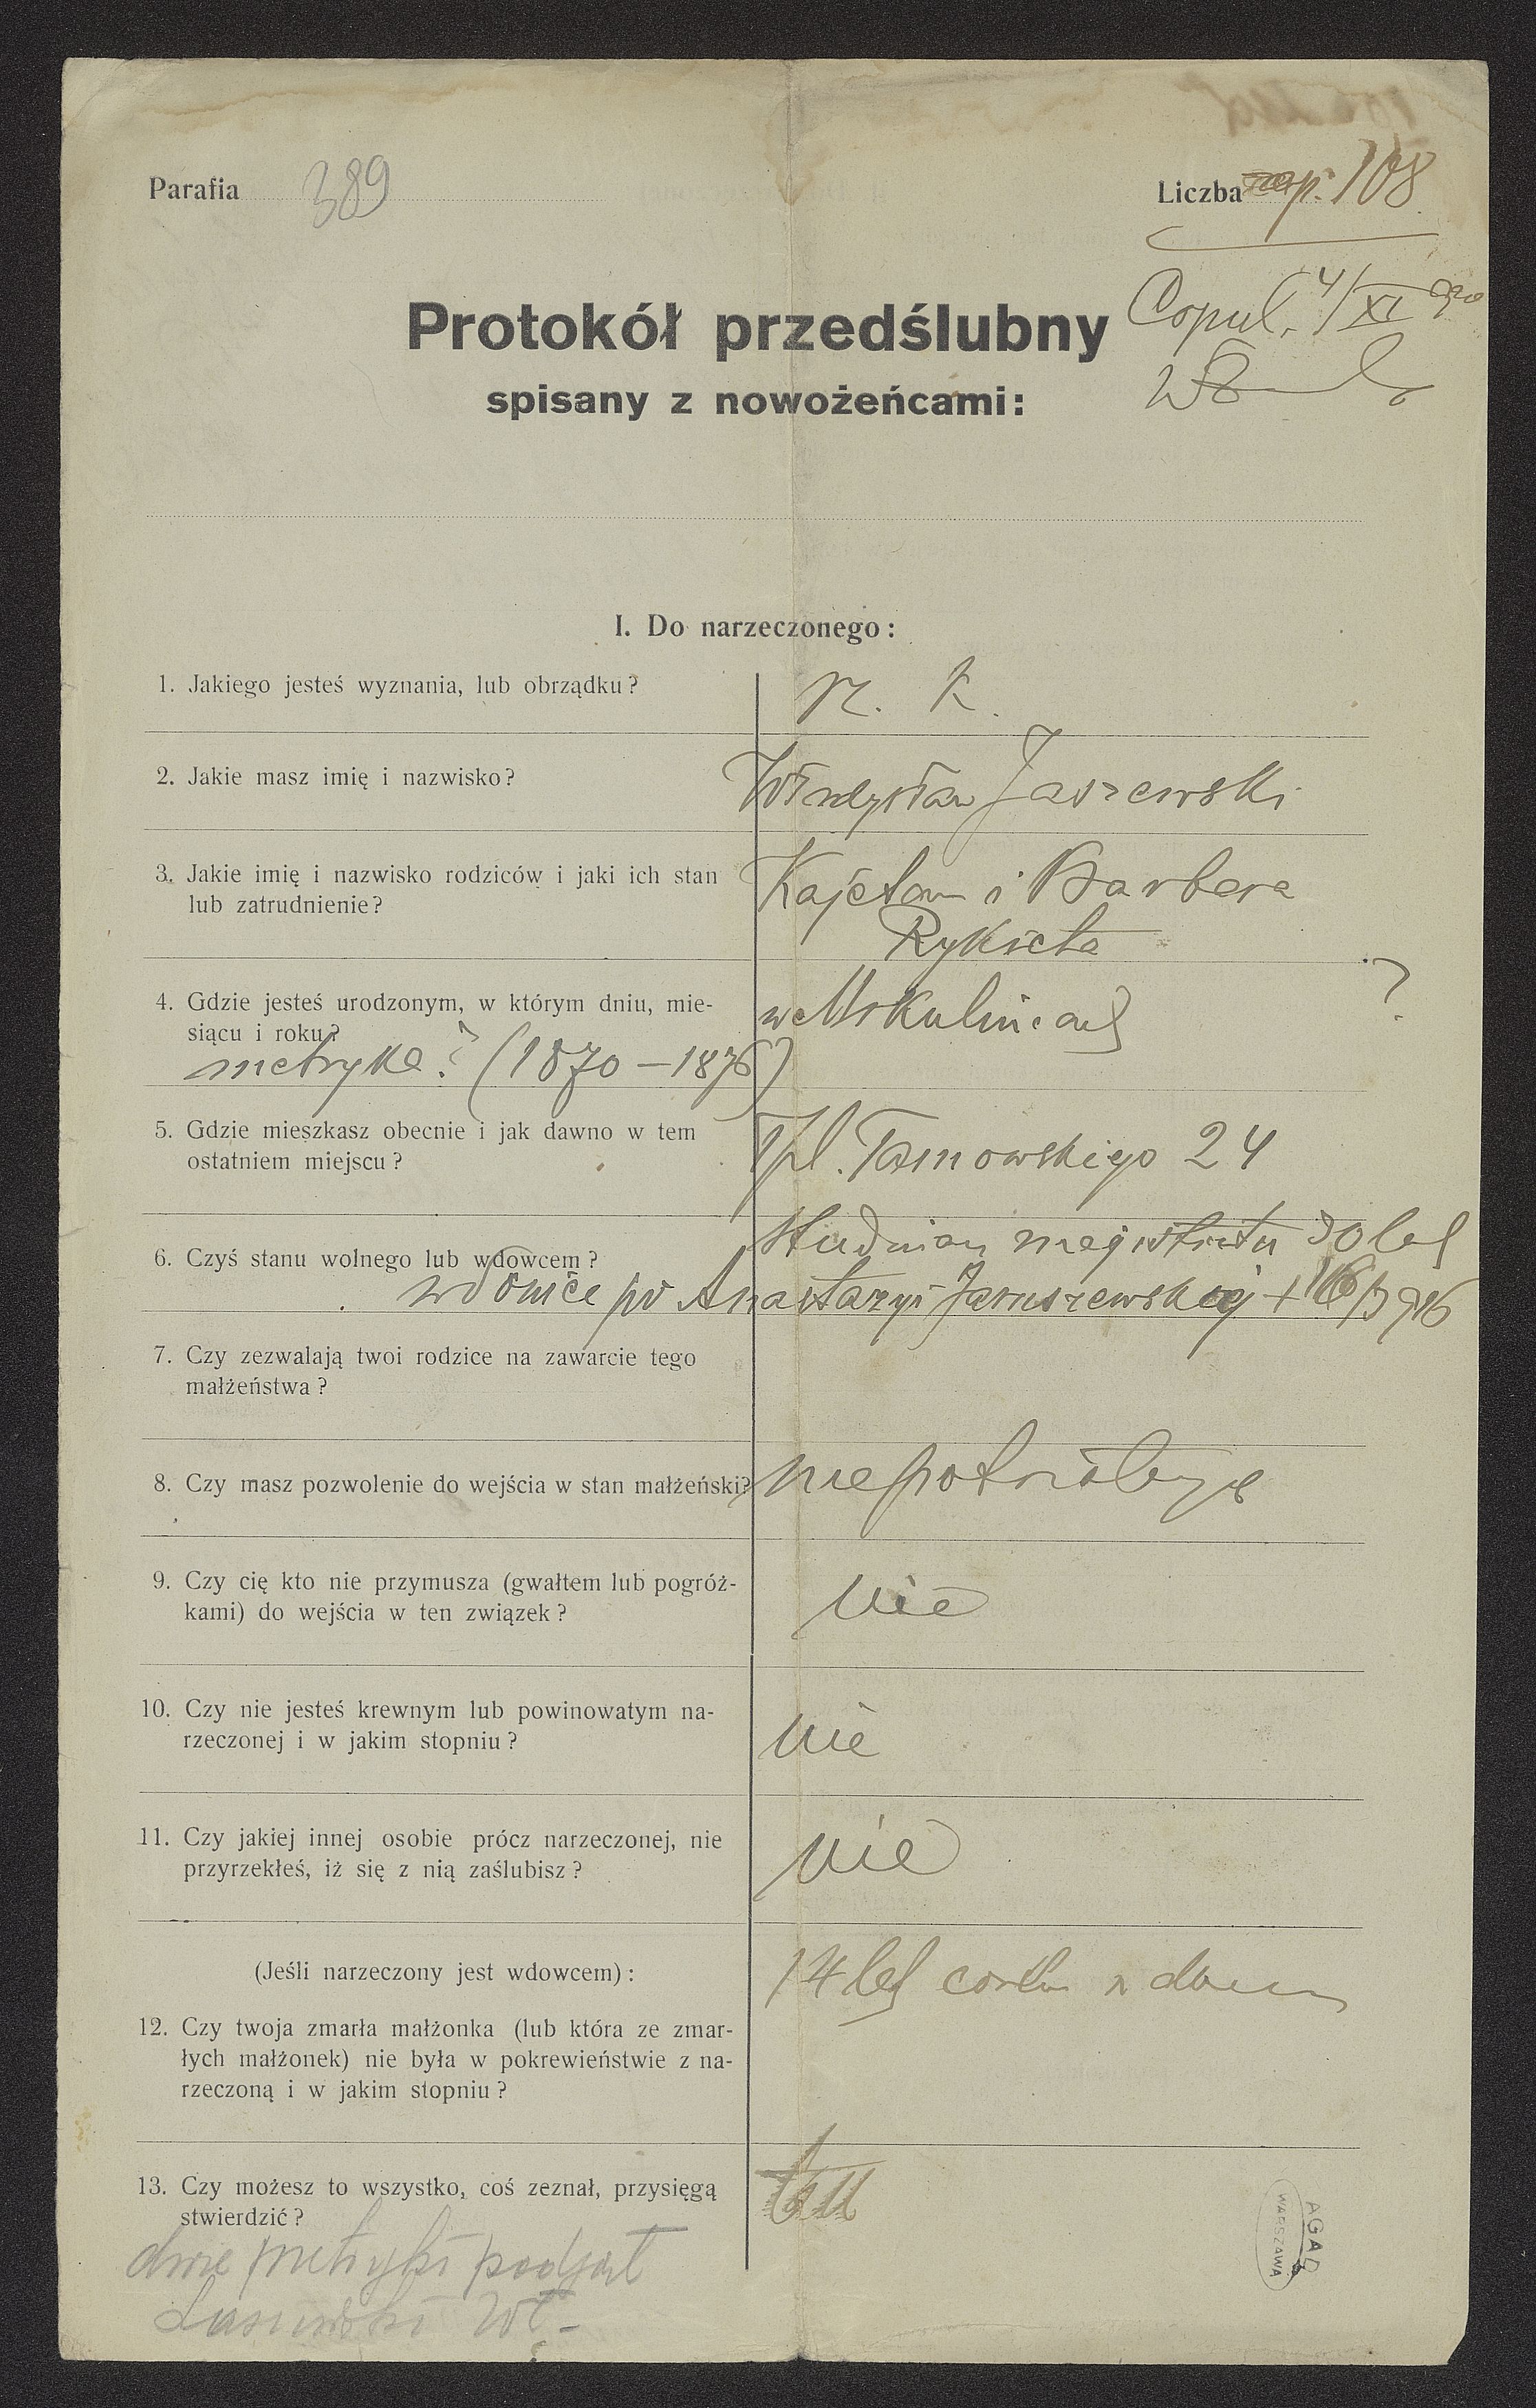 Parafia 389
Liczba p. 108
Copul. 4/XI 920
Protokół przedślubny
spisany z nowożeńcami:
I. Do narzeczonego:
1. Jakiego jesteś wyznania, lub obrządku?
rz. k.
2. Jakie masz imię i nazwisko?
Władysław Jaszewski
3. Jakie imię i nazwisko rodziców i jaki ich stan
lub zatrudnienie?
Kajetan i Barbara
Rykieta
4. Gdzie jesteś urodzonym, w którym dniu, mie-
siącu i roku?
we Mikulińcach ?
metryka? (1870 – 1876)
5. Gdzie mieszkasz obecnie i jak dawno w tem
ostatniem miejscu?
Pl. Tarnowskiego 24
studniarz magistratu 30 lat
6. Czyś stanu wolnego lub wdowcem?
wdowiec po Anastazyi Jaruszewskiej + 916
7. Czy zezwalają twoi rodzice na zawarcie tego
małżeństwa?
8. Czy masz pozwolenie do wejścia w stan małżeński?
nie potrzebuję
9. Czy cię kto nie przymusza (gwałtem lub pogróż-
kami) do wejścia w ten związek?
nie
10. Czy nie jesteś krewnym lub powinowatym na-
rzeczonej i w jakim stopniu?
nie
11. Czy jakiej innej osobie prócz narzeczonej, nie
przyrzekłeś, iż się z nią zaślubisz?
nie
(Jeśli narzeczony jest wdowcem):
14 let córka w domu
12. Czy twoja zmarła małżonka (lub która ze zmar-
łych małżonek) nie była w pokrewieństwie z na-
rzeczoną i w jakim stopniu?
13. Czy możesz to wszystko, coś zeznał, przysięgą
stwierdzić?
tak
dwie metryki podjął
AGAD
WARSZAWA